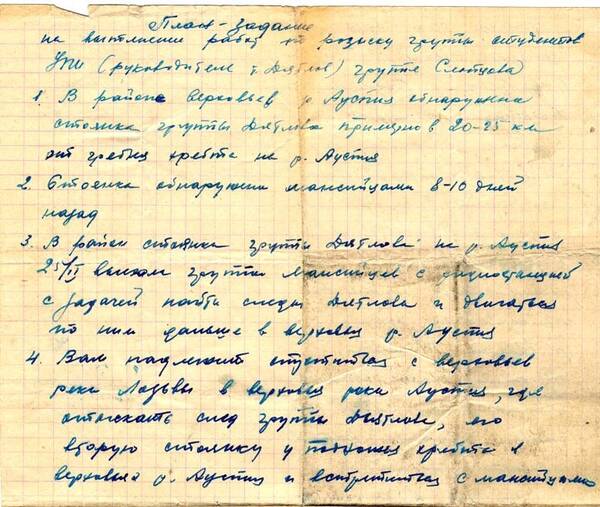 План-задание
на выполнение работ по розыску группы студентов
УПИ (руководитель т. Дятлов) группе Слобцова
1. В районе верховьев р. Ауспия обнаружена
стоянка группы Дятлова примерно в 20-25 км
от гребня хребта на р. Ауспия
2. Стоянка обнаружена мансийцами 8-10 дней
назад
3. В район стоянки группы Дятлова на р. Ауспия
25/II выехали группы мансийцев с радиостанцией
с задачей найти следы Дятлова и двигаться
по ним дальше в верховья р. Ауспия
4. Вам надлежит спуститься с верховьев
реки Лозьвы в верховья реки Ауспия, где
отыскать след группы Дятлова, его
вторую стоянку у подножия хребта в
верховья р. Ауспия и встретиться с мансийцами